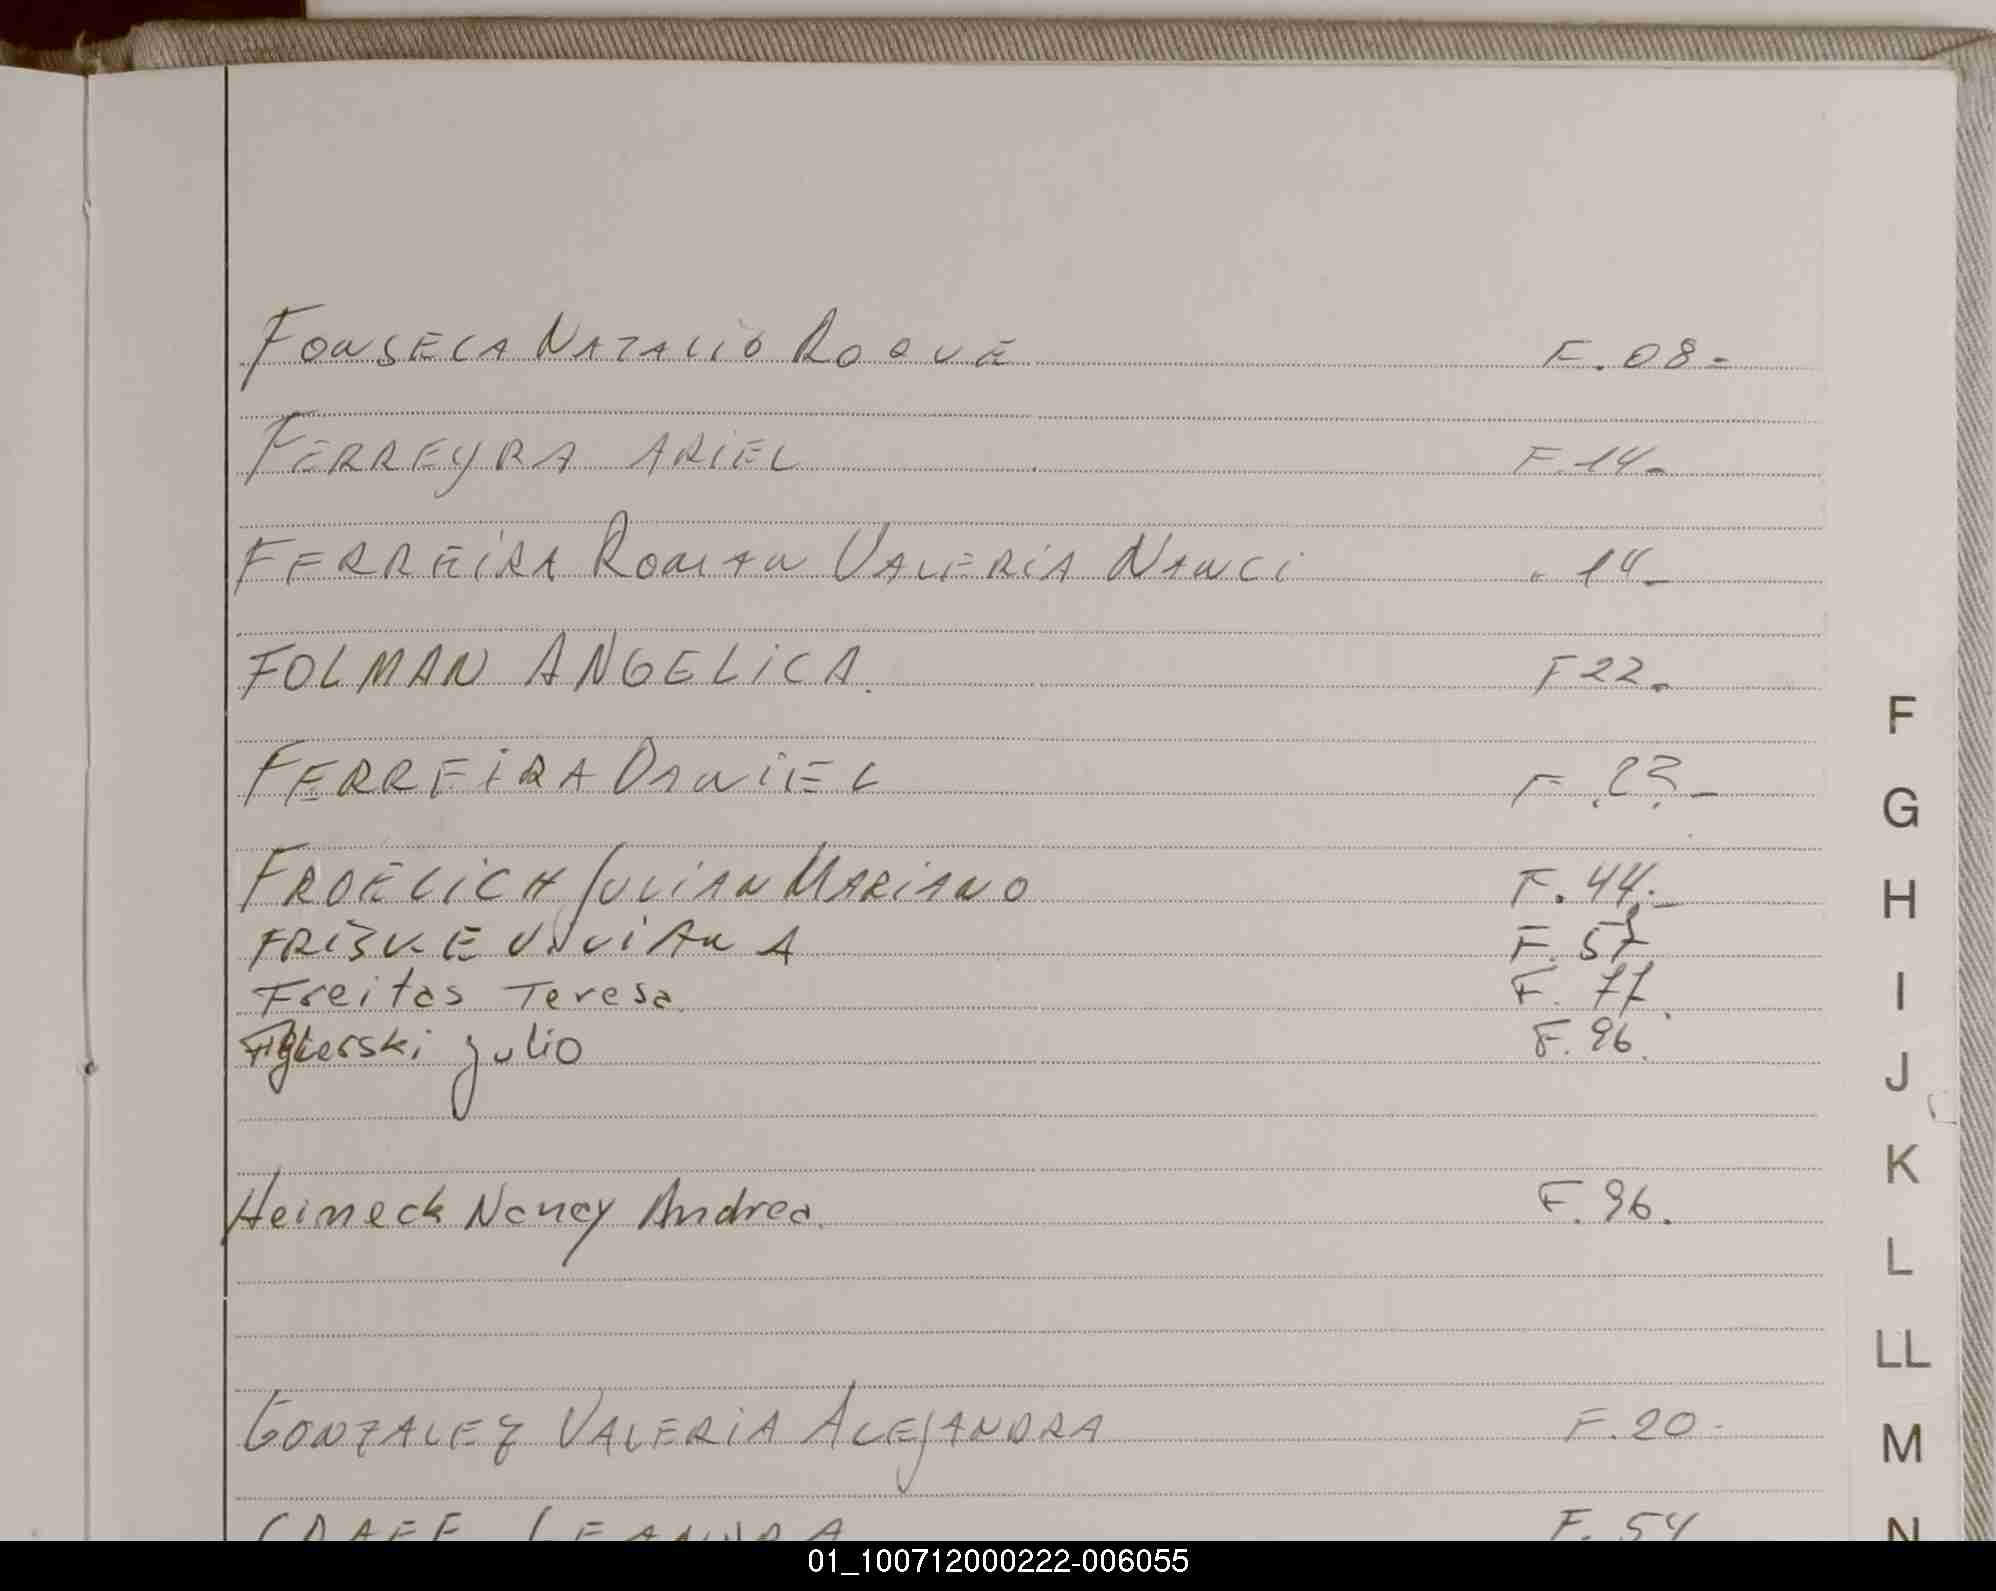 FONSECA NATALIO ROQUE F. 08-
FERREYRA ARIEL F. 14-
FERREIRA ROMAN VALERIA NANCI " 14-
FOLMAN ANGELICA. F 22-
FERREIRA DANIEL F. 23.-
FROELICH JULIAN MARIANO F. 44.-
VIVIANA F. 57
Freitas Teresa. F. 77.
Julio F. 96.
Heineck Nancy Andrea. F. 96.
GONZALEZ VALERIA ALEJANDRA F. 20-
GRAEF LEANDRA F. 54
F
G
H
I
J
K
L
LL
M
N
01_100712000222-006055